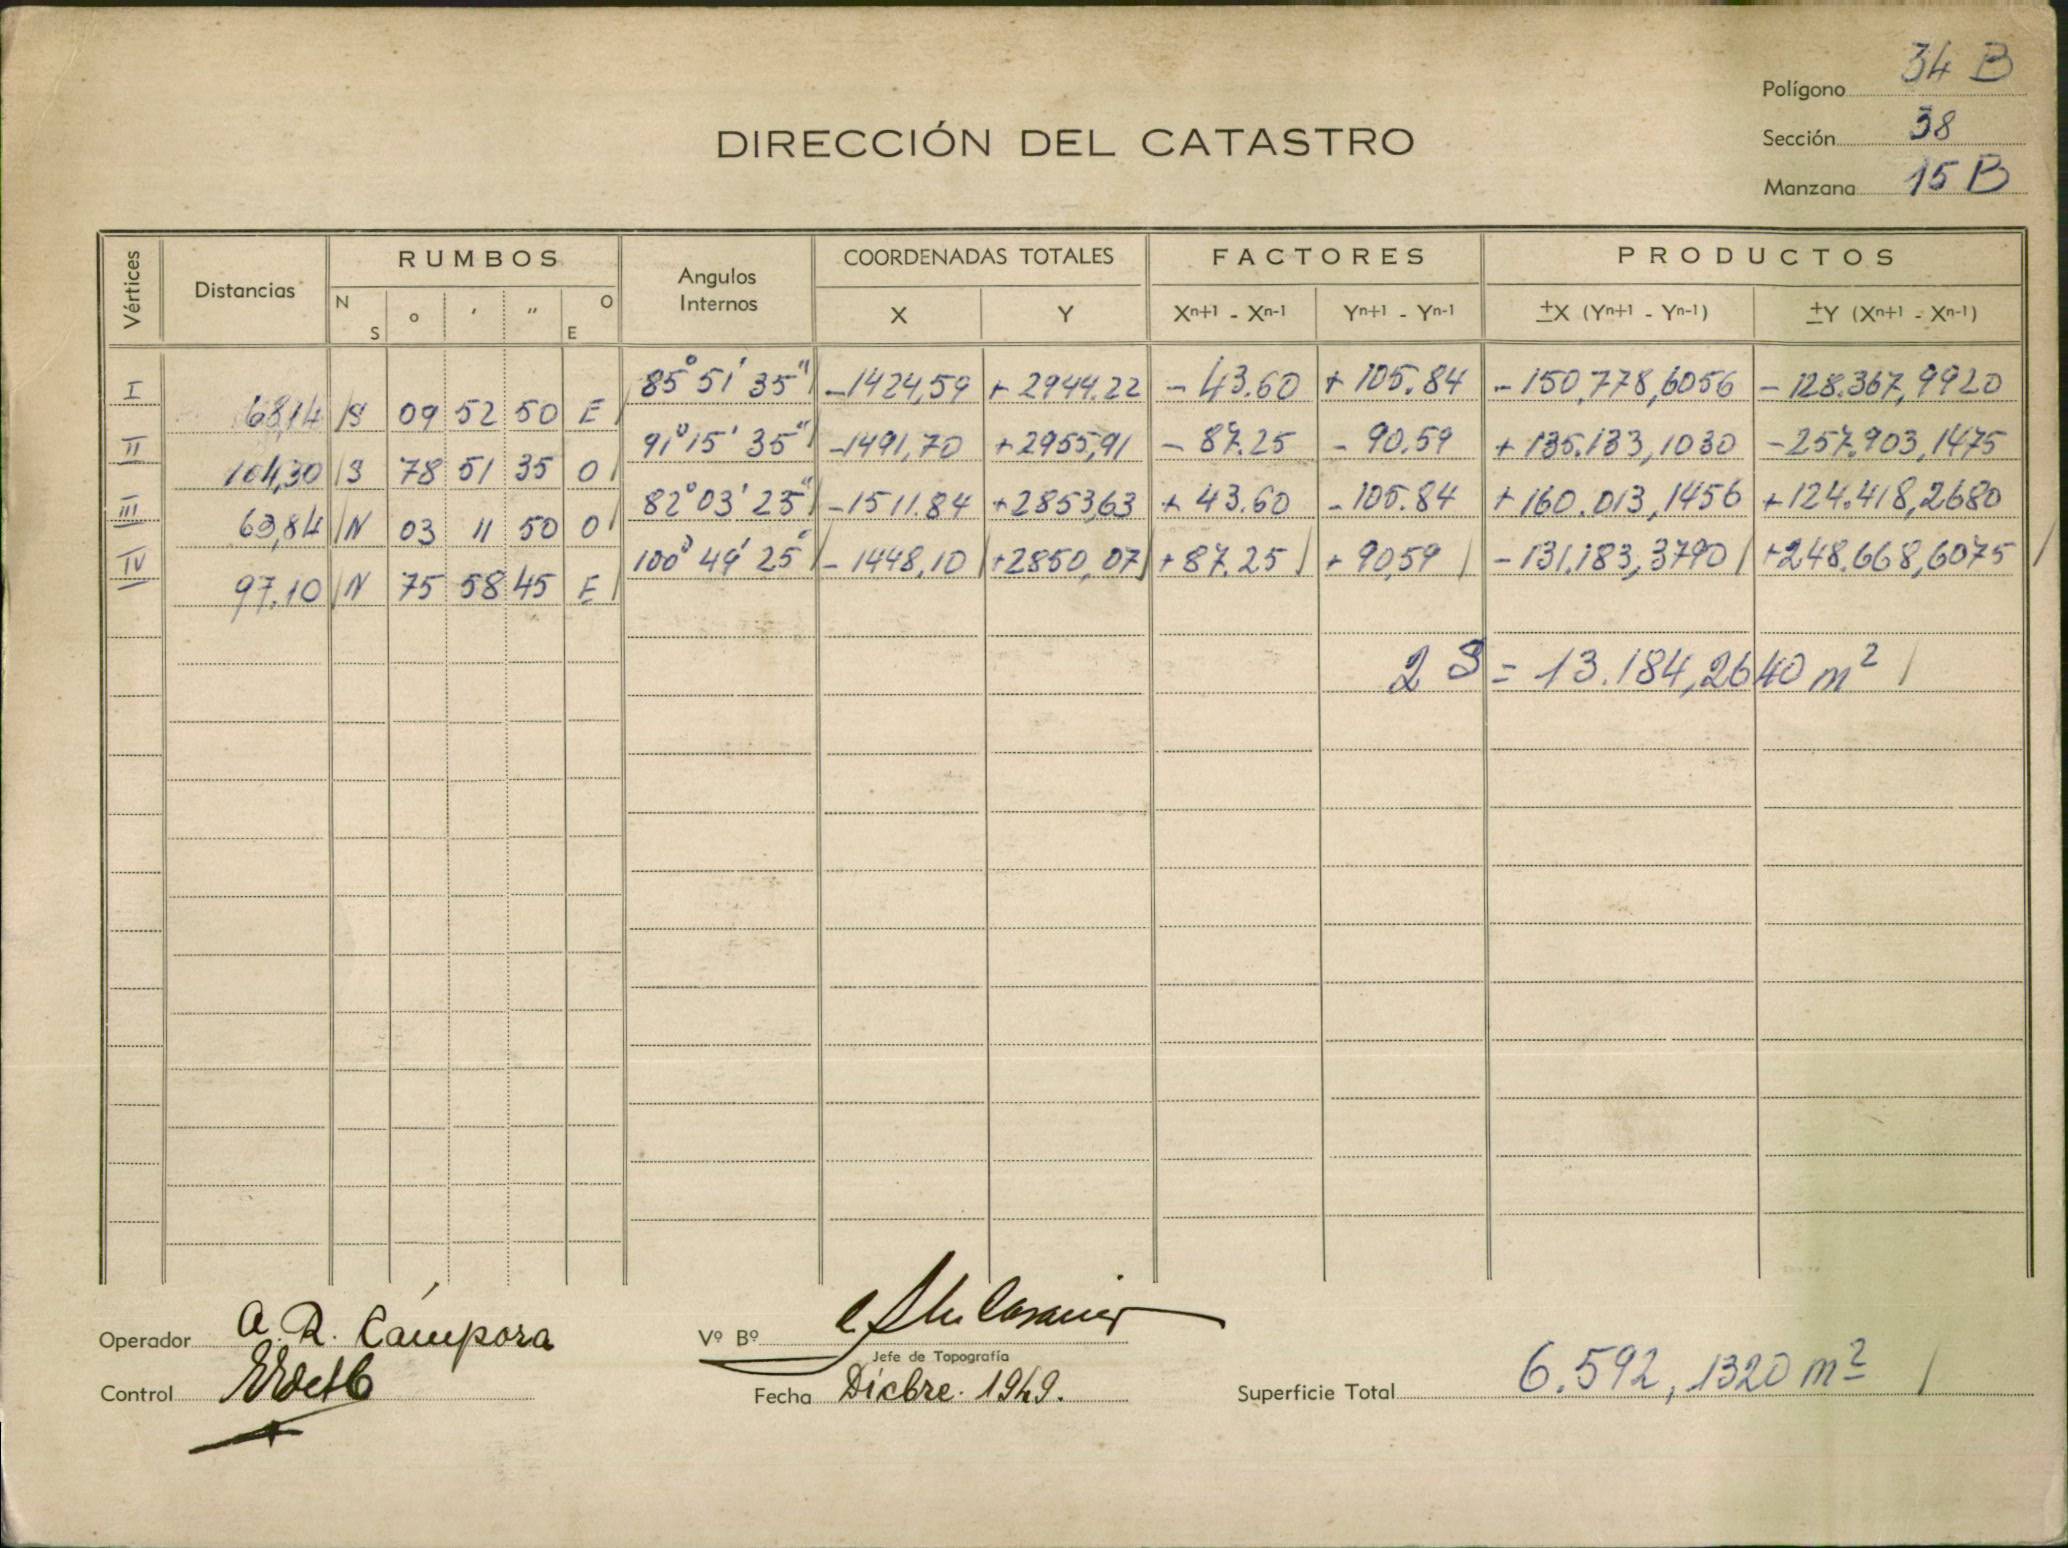 Polígono 34 B
DIRECCIÓN DEL CATASTRO
Sección 38
Manzana 15 B
Vértices Distancias RUMBOS Angulos Internos COORDENADAS TOTALES FACTORES PRODUCTOS
N S ° ′ ″ O E X Y Xⁿ⁺¹ - Xⁿ⁻¹ Yⁿ⁺¹ - Yⁿ⁻¹ ±X (Yⁿ⁺¹ - Yⁿ⁻¹) ±Y (Xⁿ⁺¹ - Xⁿ⁻¹)
I 85° 51' 35" -1424,59 + 2944.22 - 43.60 + 105.84 - 150,778,6056 - 128.367,9920
68,14 S 09 52 50 E
II 91° 15' 35" -1491,70 +2955,91 - 87.25 - 90.59 + 135.133,1030 -257.903,1475
104,30 S 78 51 35 O
III 82° 03' 25" -1511.84 +2853,63 + 43.60 -105.84 +160.013,1456 +124.418,2680
63,84 N 03 11 50 O
IV 100° 49' 25" - 1448,10 +2850,07 +87.25 + 90,59 -131.183,3790 +248.668,6075
97.10 N 75 58 45 E
2 S = 13.184,2640 m²
Operador A. R. Cámpora
Vº Bº
Jefe de Topografía
Control
Fecha Dicbre. 1949.
Superficie Total 6.592,1320 m²